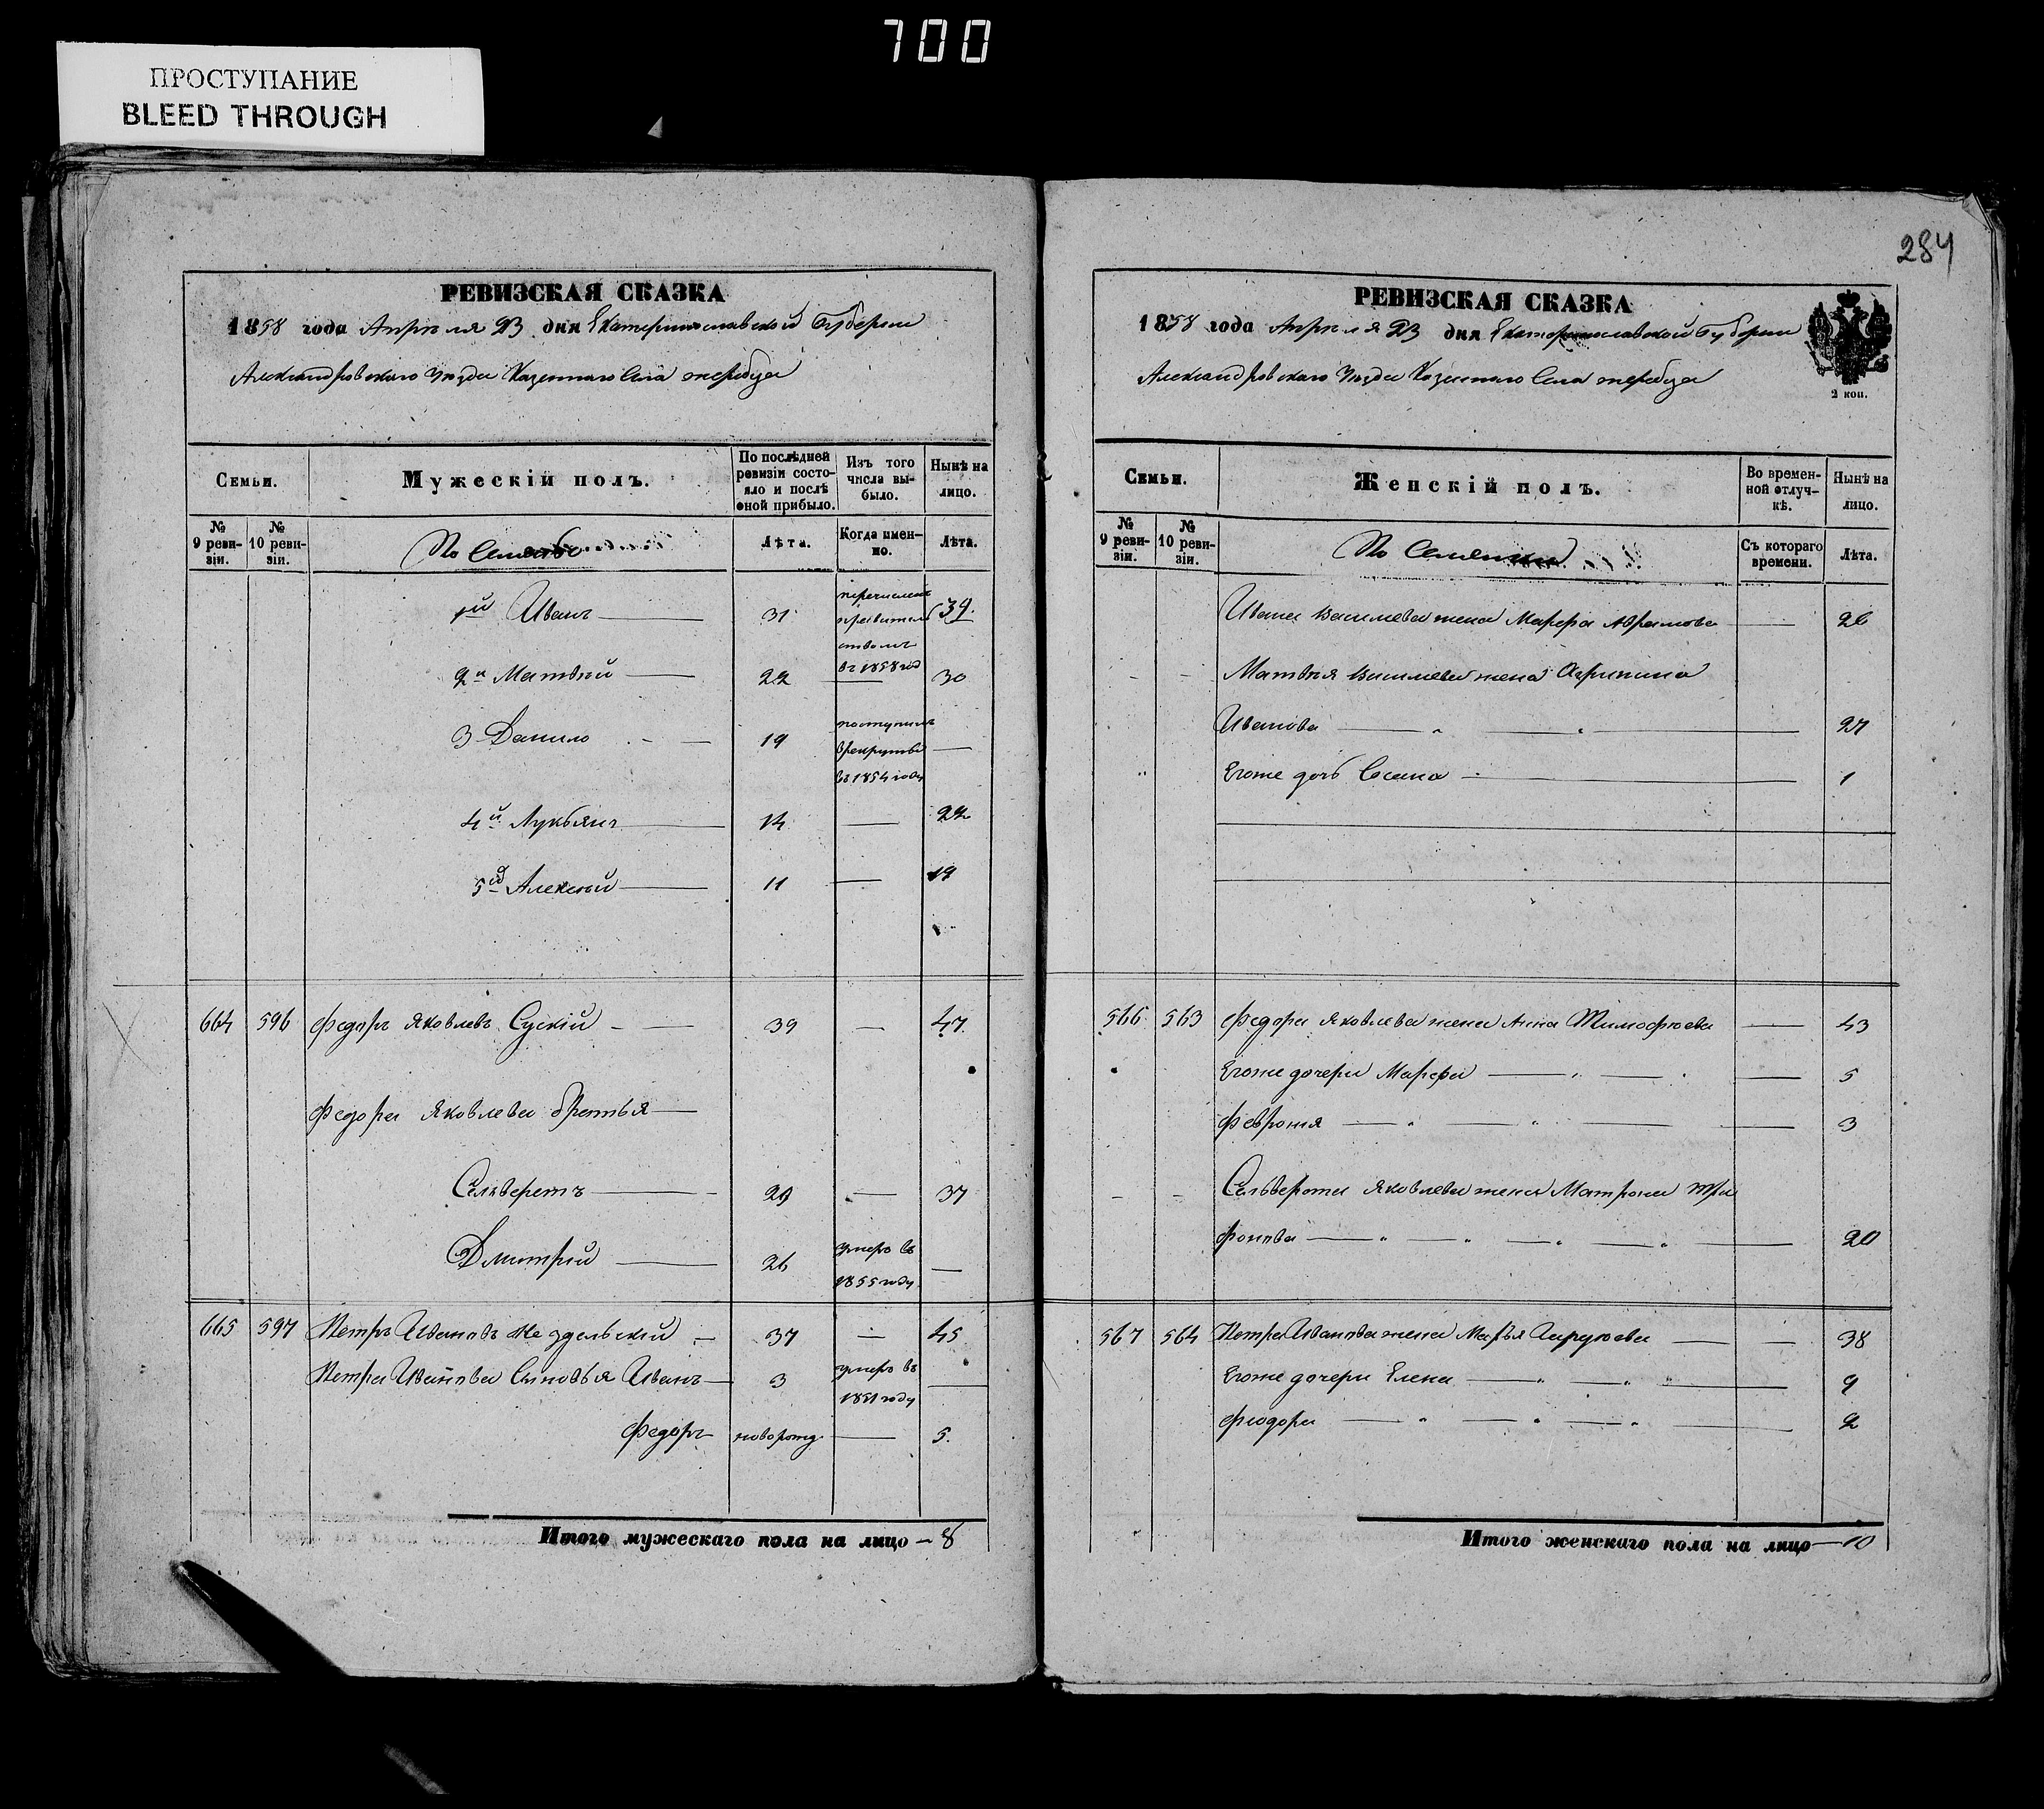 700
ПРОСТУПАНИЕ
BLEED THROUGH
284
РЕВИЗСКАЯ СКАЗКА
1858 года Апреля 23 дня Екатеринославской Губернии
Александровского Уезда Казенного Села
Семьи.
Мужескій полъ.
По послѣдней ревизіи состояло и послѣ оной прибыло.
Изъ того числа выбыло.
Нынѣ на лицо.
№ 9 ревизіи.
№ 10 ревизіи.
Лѣта.
Когда именно.
Лѣта.
1й Иванъ 31 перечисленъ въ 1858 год 39.
2й Матвѣй 22 — 30
3 Данило 19 поступилъ в рекруты въ 1854 году —
4й Лукьянъ 14 — 22
5й Алексѣй 11 — 19
664 596 Федоръ Яковлевъ Сускій 39 — 47.
Федора Яковлева братья
Сельверстъ 29 — 37
Дмитрій 26 умеръ въ 1855 году —
665 597 Петръ Ивановъ 37 — 45
Петра Иванова Сыновья Иванъ 3 умеръ въ 1851 году —
Федоръ новорожд. — 5.
Итого мужескаго пола на лицо — 8
РЕВИЗСКАЯ СКАЗКА
1858 года Апреля 23 дня Екатеринославской Губернии
Александровского Уезда Казенного Села
2 коп.
Семьи.
Женскій полъ.
Во временной отлучкѣ.
Нынѣ на лицо.
№ 9 ревизіи.
№ 10 ревизіи.
Съ котораго времени.
Лѣта.
Ивана Васильева жена Марфа Абрамова — 26
Матвѣя Васильева жена Агрипина
Иванова — 27
Егоже дочь — 1
566 563 Федора Яковлева жена Анна Тимофѣева — 43
Егоже дочери Марфа — 5
Феврония — 3
Сельверста Яковлева жена Матрона Три
фонова — 20
567 564 Петра Иванова жена Марья — 38
Егоже дочери Елена — 9
Феодора — 2
Итого женскаго пола на лицо — 10